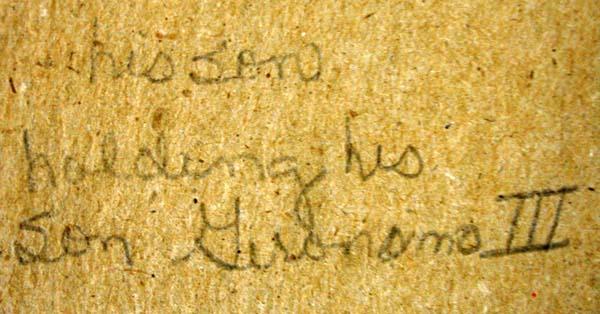 his son
holding his
son Geronomo III